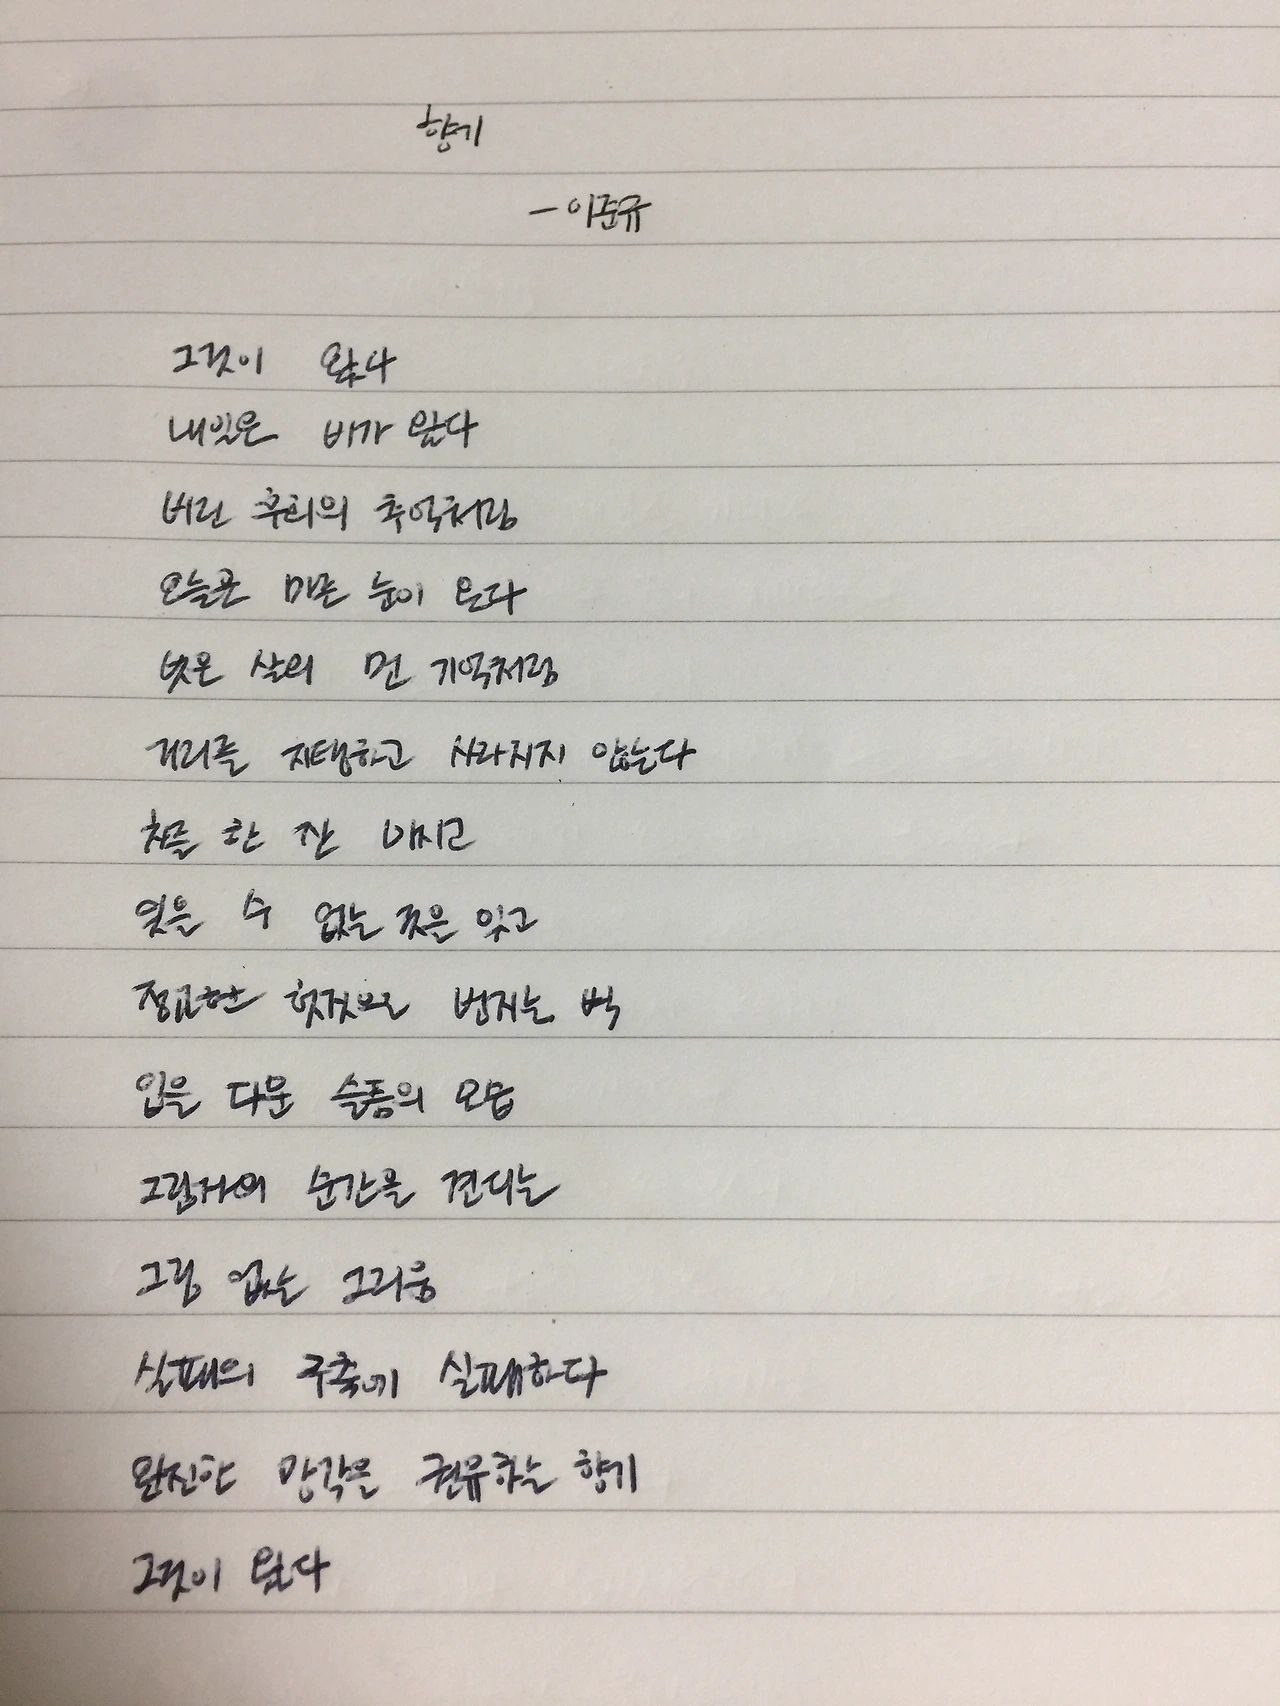 향기
- 이준규
그것이 왔다
내일은 비가 왔다
버린 후회의 추억처럼
오늘은 마른 눈이 온다
벗은 살의 먼 기억처럼
거리를 지탱하고 사라지지 않는다
차를 한 잔 마시고
잊을 수 없는 것을 잊고
정교한 헛것으로 번지는 벽
입을 다문 슬픔의 모습
그림자의 순간을 견디는
그림 없는 그리움
실패의 구축에 실패하다
완전한 망각을 권유하는 향기
그것이 왔다